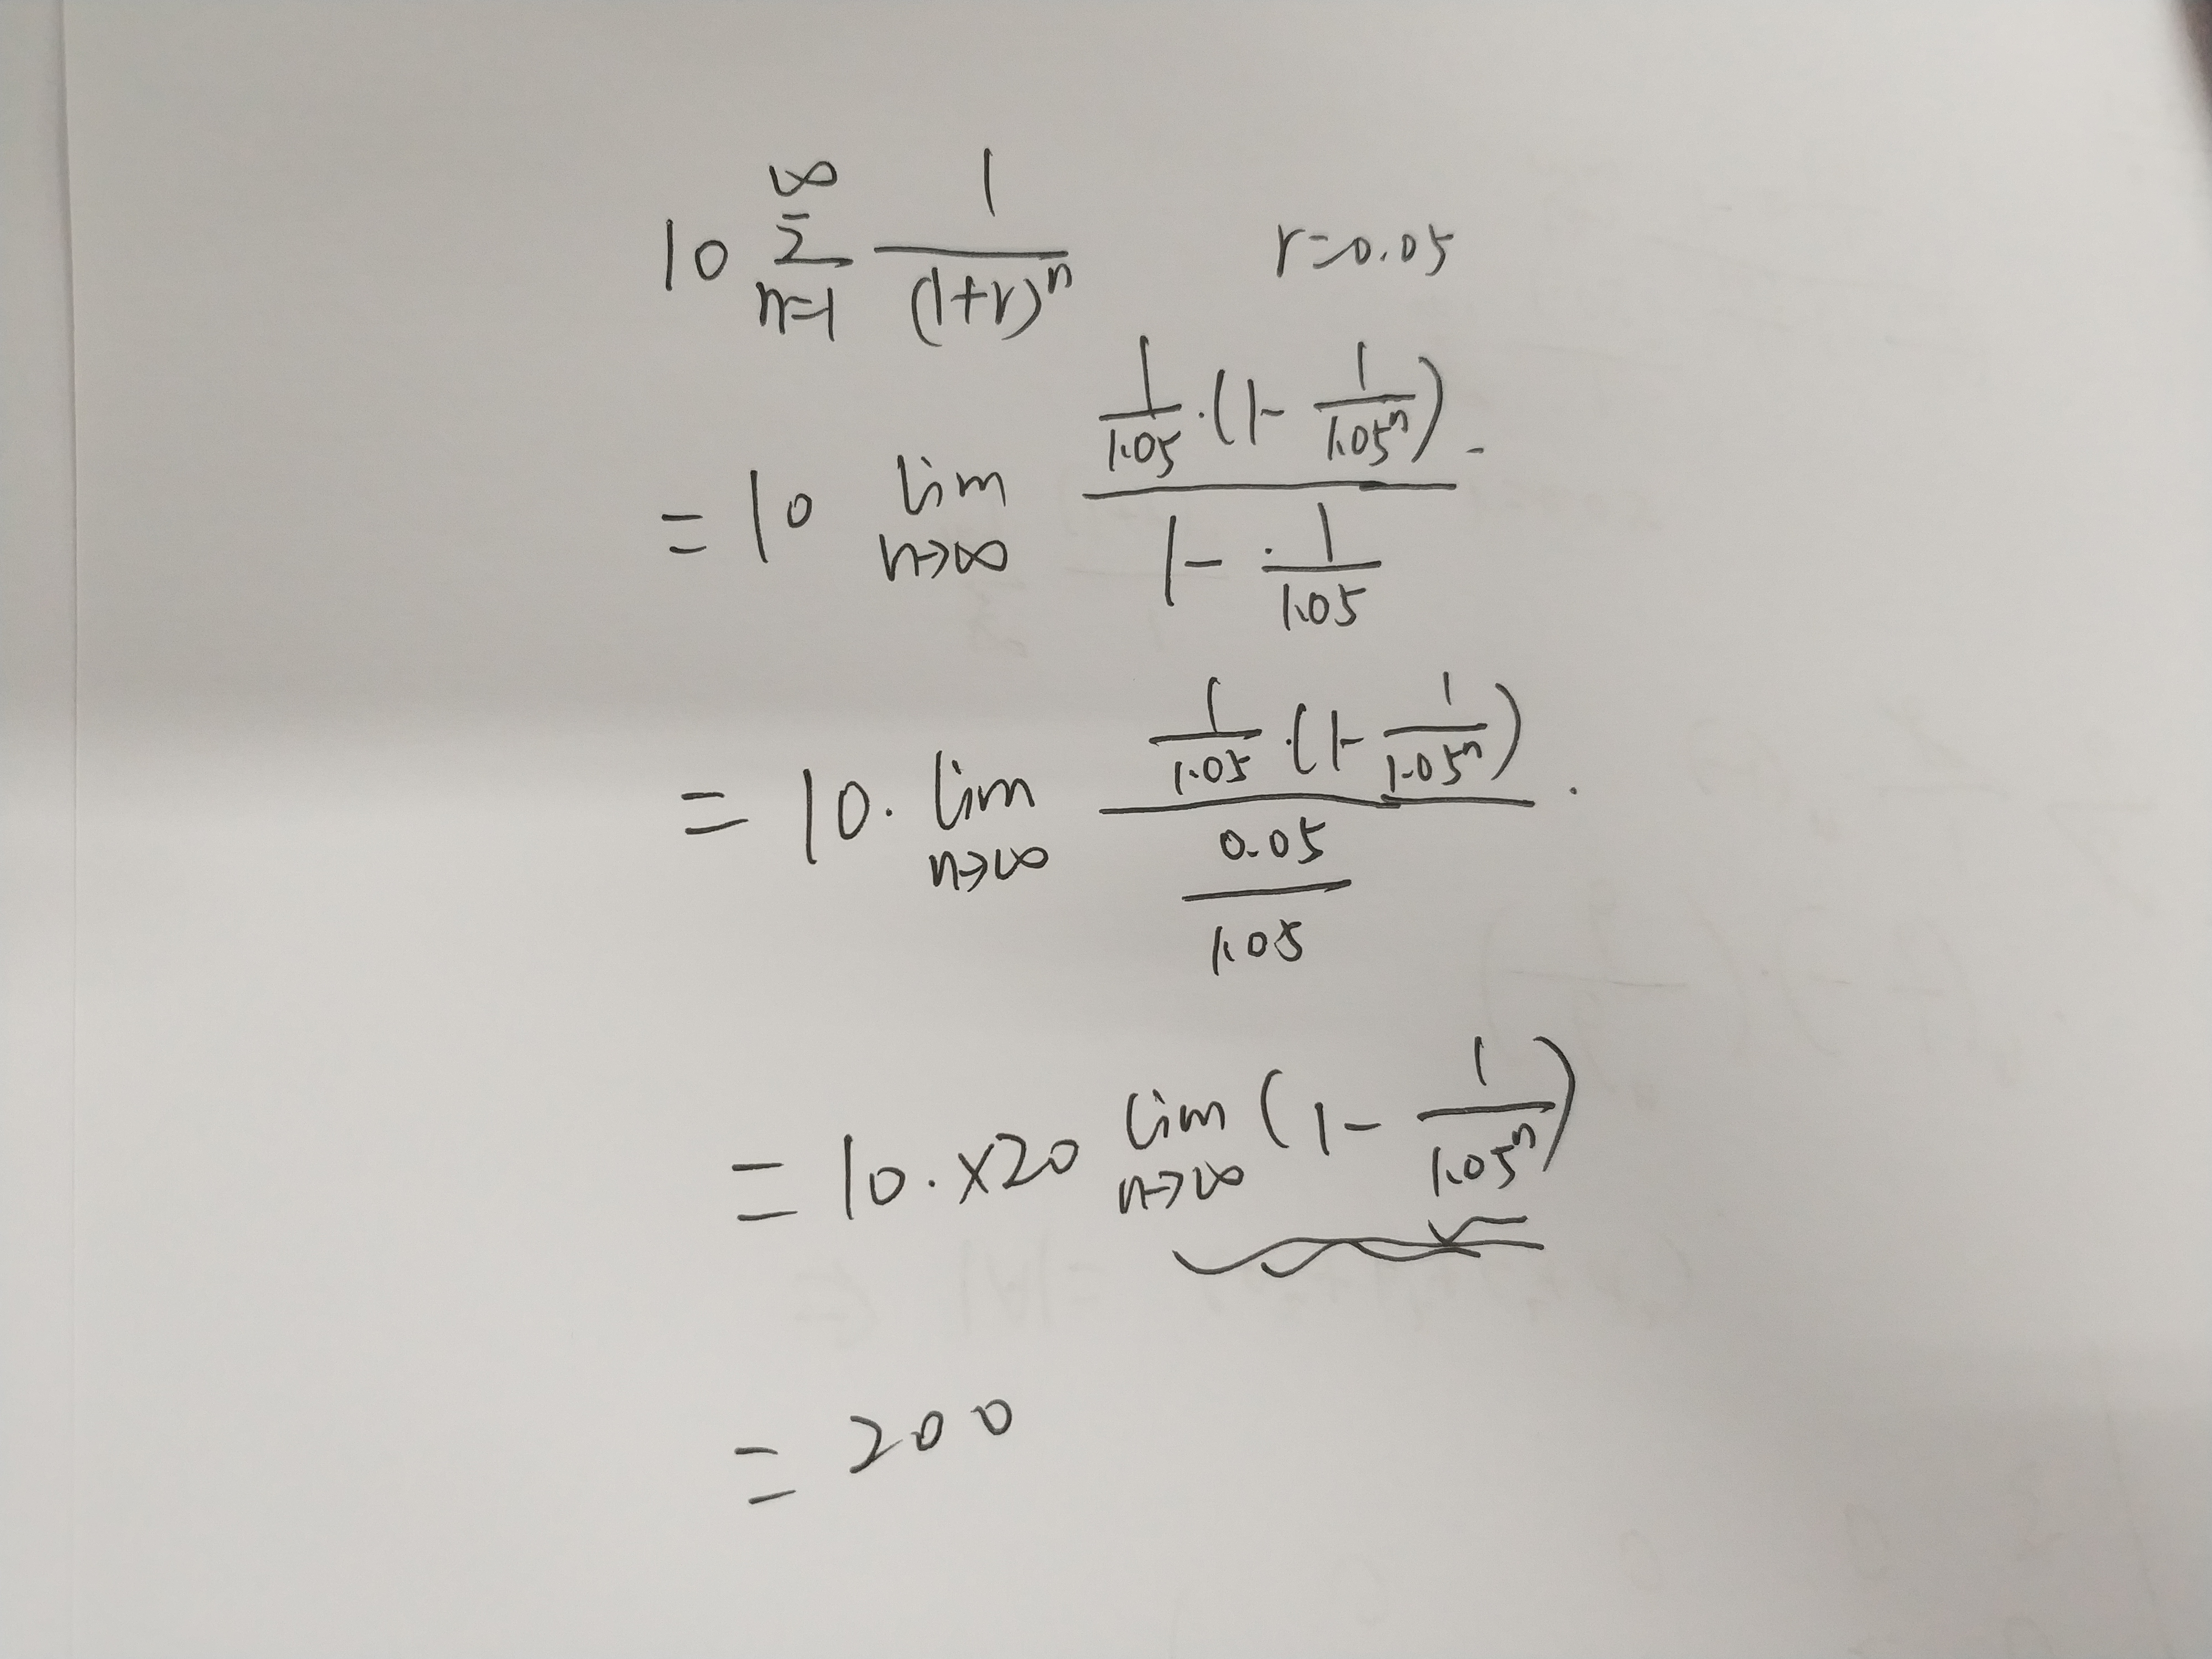 10 ∞ Σ n=1 1/(1+r)^n r=0.05
= 10 lim n→∞ (1/1.05 · (1 - 1/1.05^n)) / (1 - 1/1.05)
= 10 · lim n→∞ (1/1.05 · (1 - 1/1.05^n)) / (0.05/1.05)
= 10 · ×20 lim n→∞ (1 - 1/1.05^n)
= 200